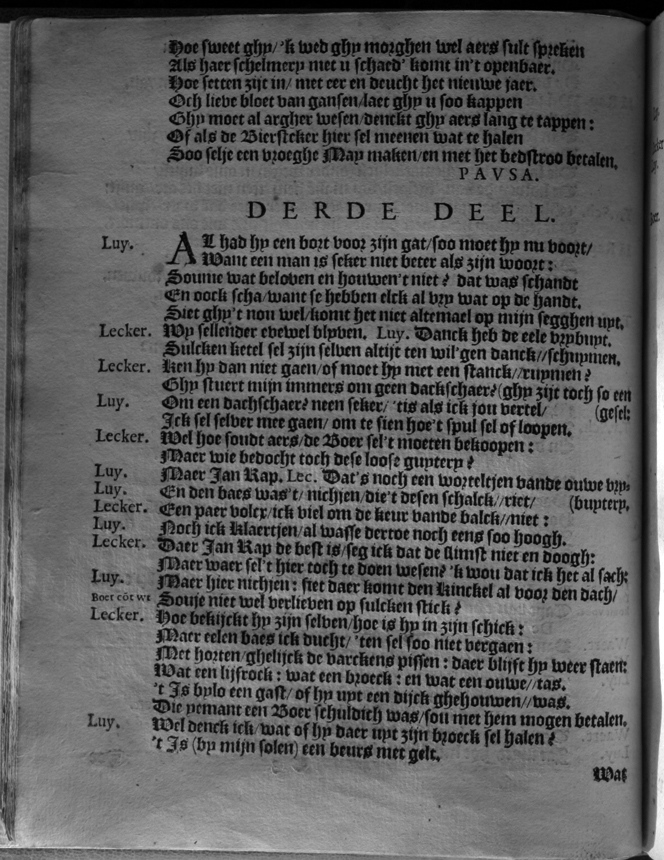 Hoe sweet ghy/'k wed ghy morghen wel aers sult spreken
Als haer schelmery met u schaed' komt in't openbaer.
Hoe setten zijt in/ met eer en deucht het nieuwe jaer.
Och lieve bloet van gansen/laet ghy u soo kappen
Ghy moet al argher wesen/denckt ghy aers lang te tappen:
Of als de Biersteker hier sel meenen wat te halen
Soo selje een vroeghe May maken/en met het bedstroo betalen.
PAVSA.
DERDE DEEL.
Luy. AL had hy een bort voor zijn gat/soo moet hy nu voort/
Want een man is seker niet beter als zijn woort:
Soume wat beloven en houwen't niet? dat was schandt
En oock scha/want se hebben elck al vry wat op de handt.
Siet ghy't nou wel/komt het niet altemael op mijn segghen uyt.
Lecker. Wy sellender evewel blyven. Luy. Danck heb de eele vrybuyt.
Sulcken ketel sel zijn selven altijt ten wil'gen danck//schuymen.
Lecker. Ken hy dan niet gaen/of moet hy met een stanck//ruymen?
Ghy stuert mijn immers om geen dackschaer?(ghy zijt toch so een
Luy. Om een dachschaer? neen seker/ 'tis als ick jou vertel/ (gesel:
Ick sel selver mee gaen/ om te sien hoe't spul sel of loopen.
Lecker. Wel hoe soudt aers/de Boer sel't moeten bekoopen:
Maer wie bedocht toch dese loose guytery?
Luy. Maer Jan Rap. Lec. Dat's noch een worteltjen vande ouwe vry-
Luy. En den baes was't/ nichjen/die't desen schalck//riet/ (buytery.
Lecker. Een paer volcx/ick viel om de keur vande balck//niet:
Luy. Noch ick Klaertjen/al wasse dertoe noch eens soo hoogh.
Lecker. Daer Jan Rap de best is/seg ick dat de slimst niet en doogh:
Maer waer sel't hier toch te doen wesen? 'k wou dat ick het al sach:
Luy. Maer hier nichjen: siet daer komt den Kinckel al voor den dach/
Boer cōt wt Souje niet wel verlieven op sulcken stick?
Lecker. Hoe bekijckt hy zijn selven/hoe is hy in zijn schick:
Maer eelen baes ick ducht/ 'ten sel soo niet vergaen:
Met horten/ghelijck de varckens pissen: daer blijft hy weer staen:
Wat een lijfrock: wat een broeck: en wat een ouwe//tas.
't Is bylo een gast/ of hy uyt een dijck ghehouwen//was.
Die yemant een Boer schuldich was/sou met hem mogen betalen.
Luy. Wel denck ick/wat of hy daer uyt zijn broeck sel halen?
't Is (by mijn solen) een beurs met gelt.
Wat